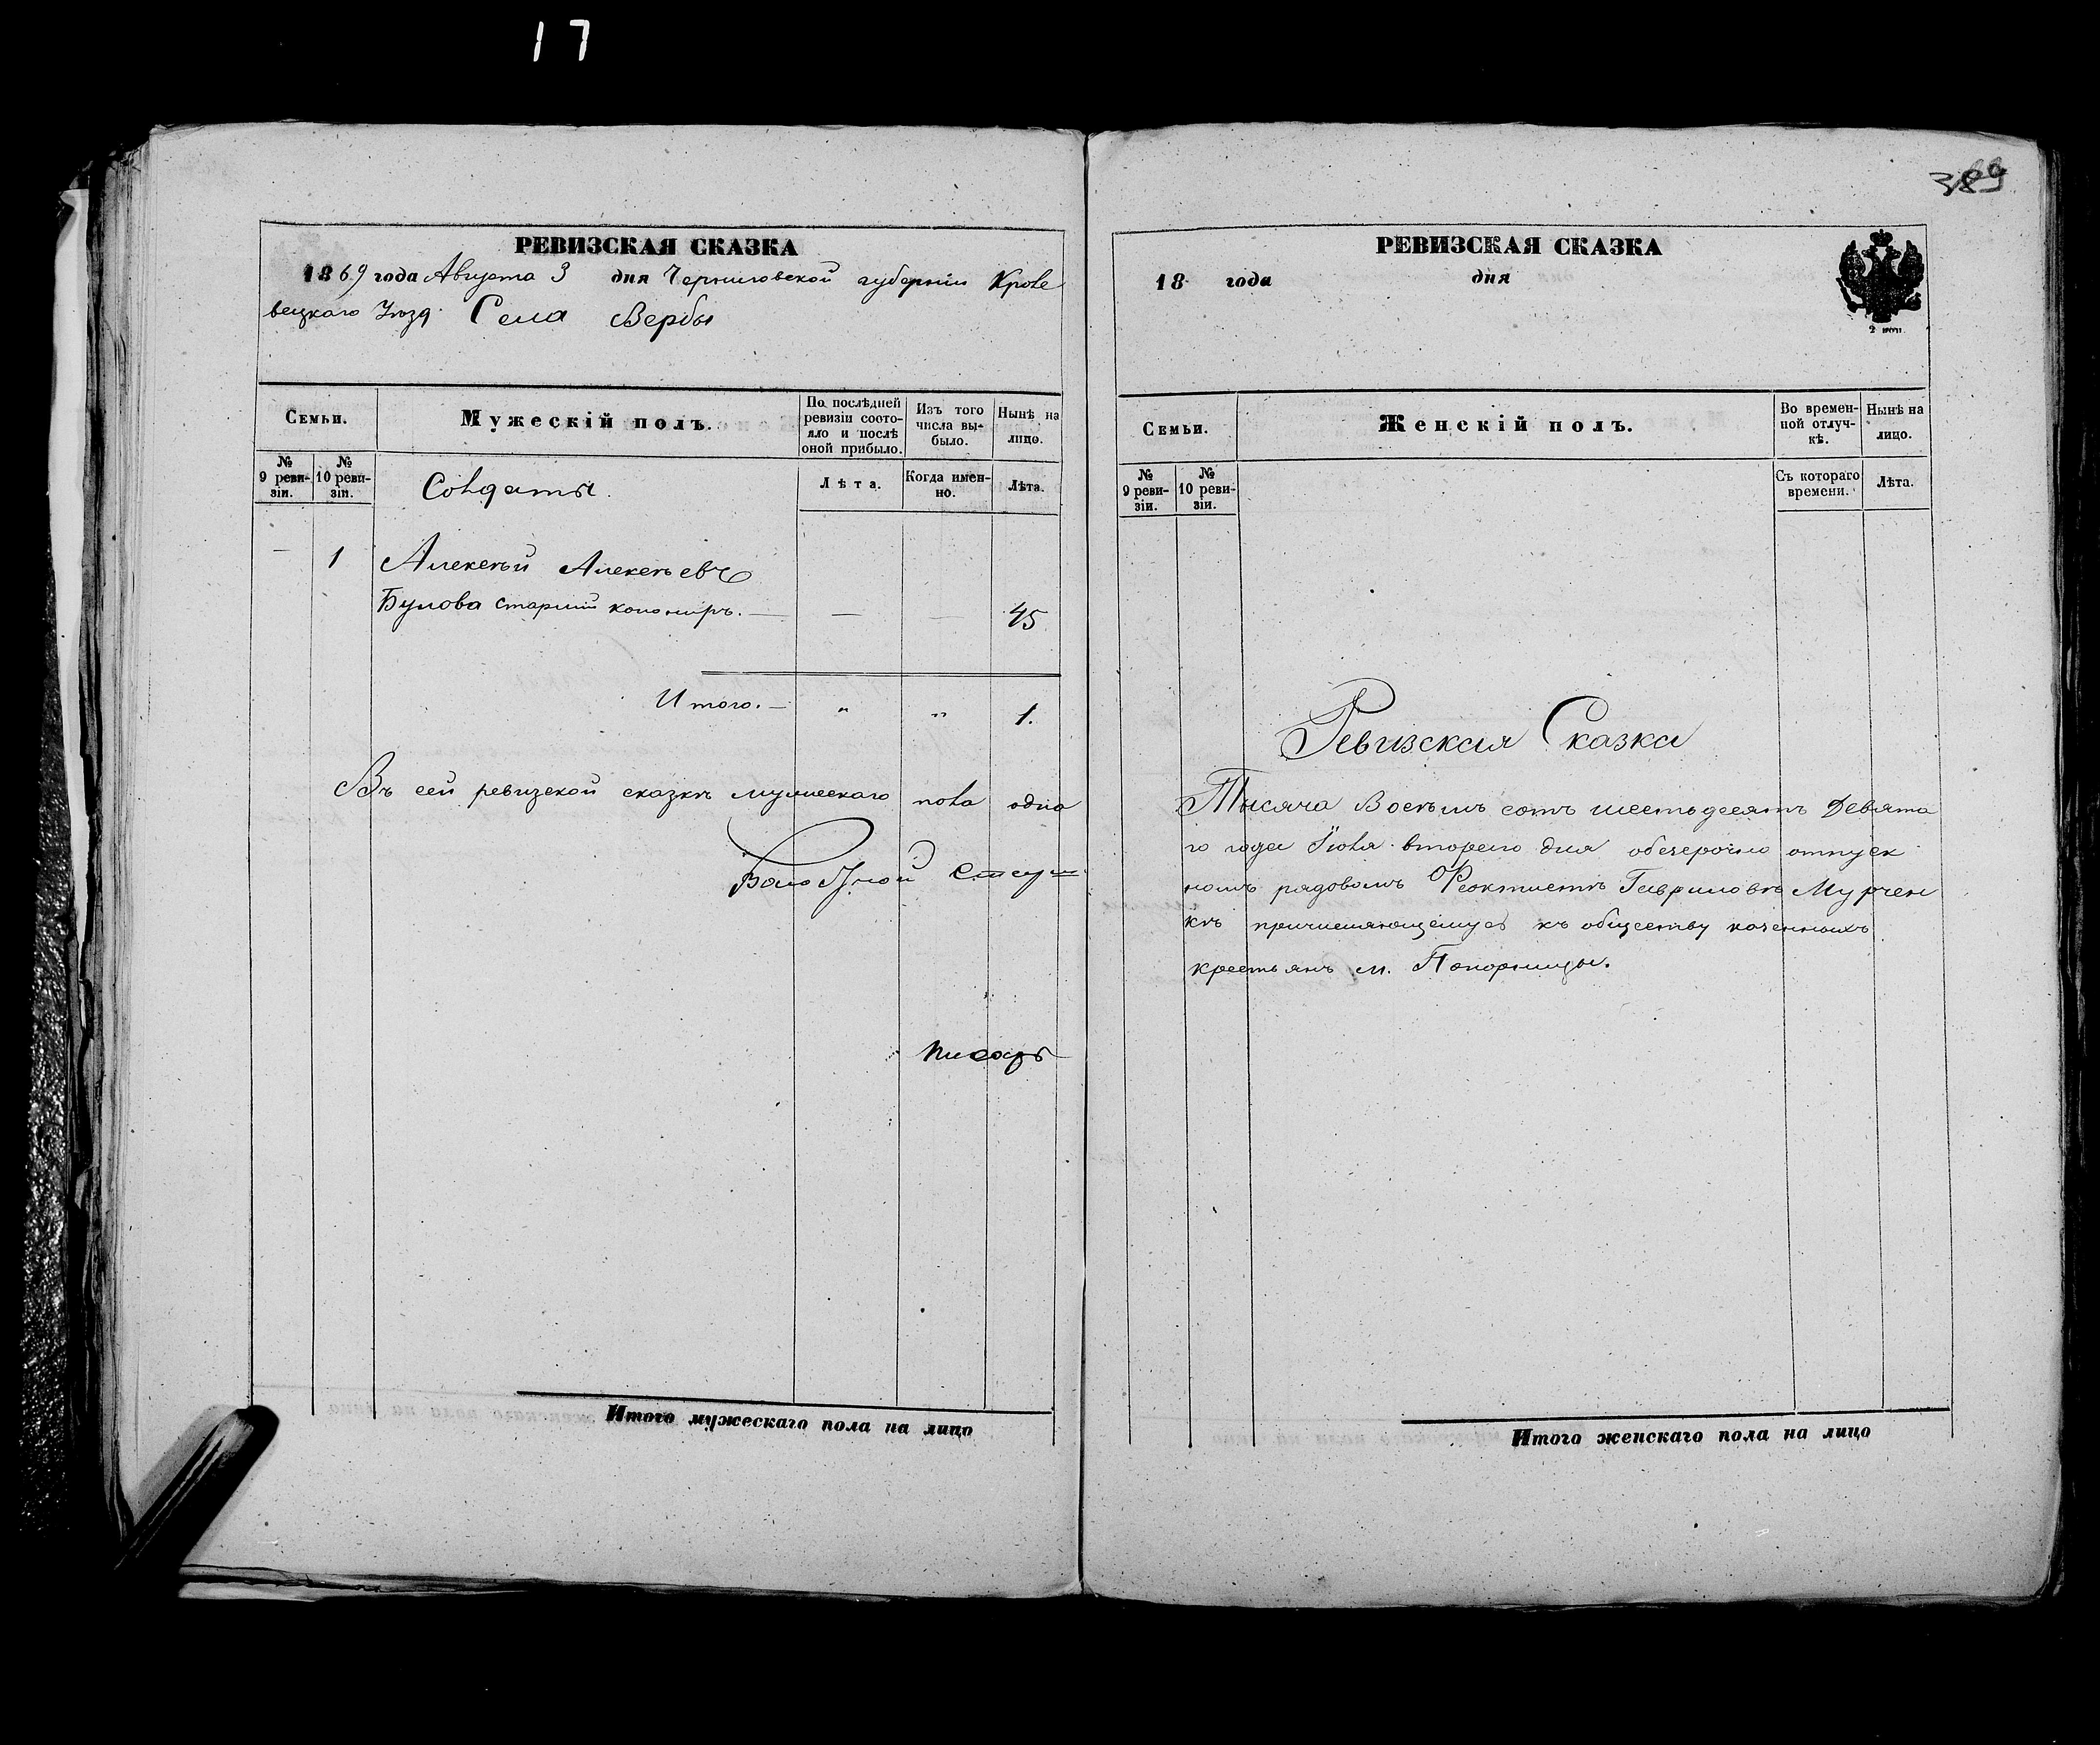 17
РЕВИЗСКАЯ СКАЗКА
1869 года Августа 3 дня Черниговской губерніи Кроле
вецкаго Уѣзд. Села Вербы
Семьи.
Мужескій полъ.
По послѣдней ревизіи состояло и послѣ оной прибыло.
Изъ того числа выбыло.
Нынѣ на лицо.
№ 9 ревизіи.
№ 10 ревизіи.
Солдаты.
Лѣта.
Когда именно.
Лѣта.
— 1 Алексѣй Алексѣевъ
Булова старший — — 45
Итого. — " " 1.
Въ сей ревизской сказкѣ мужескаго пола одна
писарь
Итого мужескаго пола на лицо
389
РЕВИЗСКАЯ СКАЗКА
18 года дня
2 коп.
Семьи.
Женскій полъ.
Во временной отлучкѣ.
Нынѣ на лицо.
№ 9 ревизіи.
№ 10 ревизіи.
Съ котораго времени.
Лѣта.
Ревизская Сказка
Тысяча Восемъ сотъ шестьдесятъ Девята
го года Іюля второго дня о безсрочно отпуск
номъ рядовомъ Феоктистѣ Гавриловѣ Мурчен
кѣ причисляющемуся къ обществу казенныхъ
крестьянъ м. Понорницы.
Итого женскаго пола на лицо